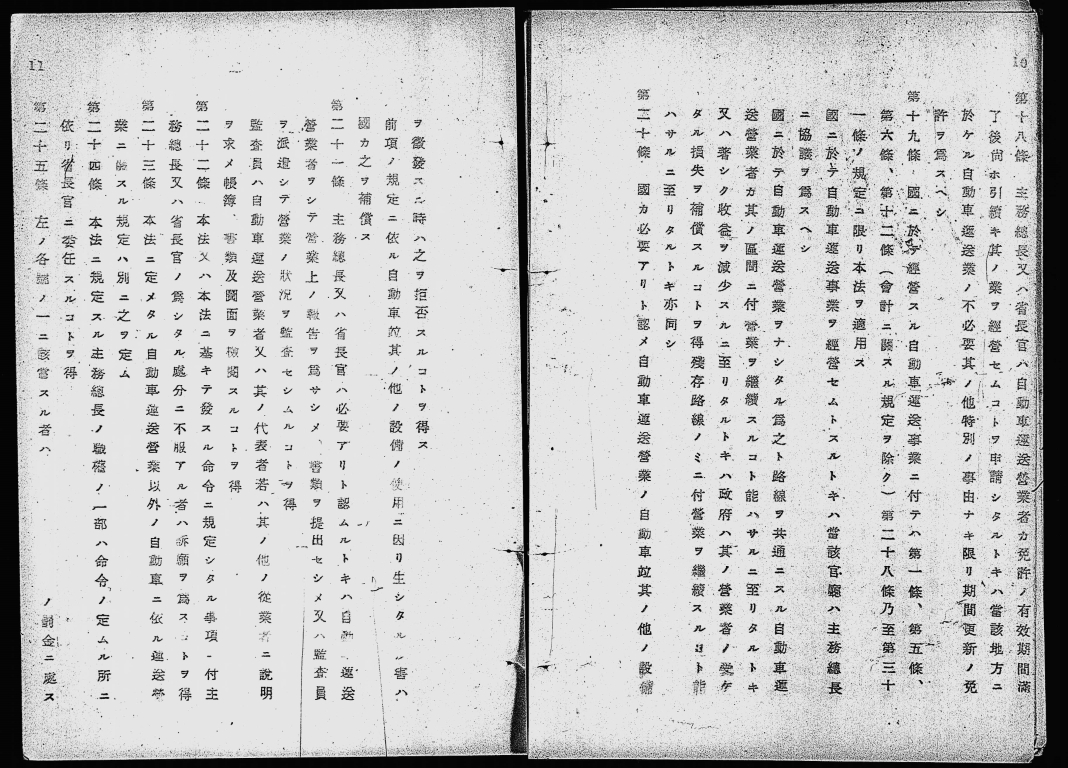 10
第十八條 主務總長又ハ省長官ハ自動車運送營業者カ免許ノ有效期間滿
了後尚ホ引續キ其ノ業ヲ經營セムコトヲ申請シタルトキハ當該地方ニ
於ケル自動車運送業ノ不必要其ノ他特別ノ事由ナキ限リ期間更新ノ免
許ヲ爲スヘシ
第十九條 國ニ於テ經營スル自動車運送事業ニ付テハ第一條、第五條、
第六條、第十二條(會計ニ關スル規定ヲ除ク)第二十八條乃至第三十
一條ノ規定ニ限リ本法ヲ適用ス
國ニ於テ自動車運送事業ヲ經營セムトスルトキハ當該官廳ハ主務總長
ニ協議ヲ爲スヘシ
國ニ於テ自動車運送營業ヲナシタル爲之ト路線ヲ共通ニスル自動車運
送營業者カ其ノ區間ニ付營業ヲ繼續スルコト能ハサルニ至リタルトキ
又ハ著シク收益ヲ減少スルニ至リタルトキハ政府ハ其ノ營業者ノ受ケ
タル損失ヲ補償スルコトヲ得殘存路線ノミニ付營業ヲ繼續スルコト能
ハサルニ至リタルトキ亦同シ
第二十條 國カ必要アリト認メ自動車運送營業ノ自動車竝其ノ他ノ設備
11
ヲ徵發スル時ハ之ヲ拒否スルコトヲ得ス
前項ノ規定ニ依ル自動車竝其ノ他ノ設備ノ使用ニ因リ生シタル 害ハ
國カ之ヲ補償ス
第二十一條 主務總長又ハ省長官ハ必要アリト認ムルトキハ自動 運送
營業者ヲシテ營業上ノ報告ヲ爲サシメ、書類ヲ提出セシメ又ハ監査員
ヲ派遣シテ營業ノ狀況ヲ監査セシムルコトヲ得
監査員ハ自動車運送營業者又ハ其ノ代表者若ハ其ノ他ノ從業者ニ說明
ヲ求メ帳簿、書類及圖面ヲ檢閱スルコトヲ得
第二十二條 本法又ハ本法ニ基キテ發スル命令ニ規定シタル事項 付主
務總長又ハ省長官ノ爲シタル處分ニ不服アル者ハ訴願ヲ爲スコトヲ得
第二十三條 本法ニ定メタル自動車運送營業以外ノ自動車ニ依ル運送營
業ニ關スル規定ハ別ニ之ヲ定ム
第二十四條 本法ニ規定スル主務總長ノ職權ノ一部ハ命令ノ定ムル所ニ
依リ省長官ニ委任スルコトヲ得
第二十五條 左ノ各號ノ一ニ該當スル者ハ ノ罰金ニ處ス